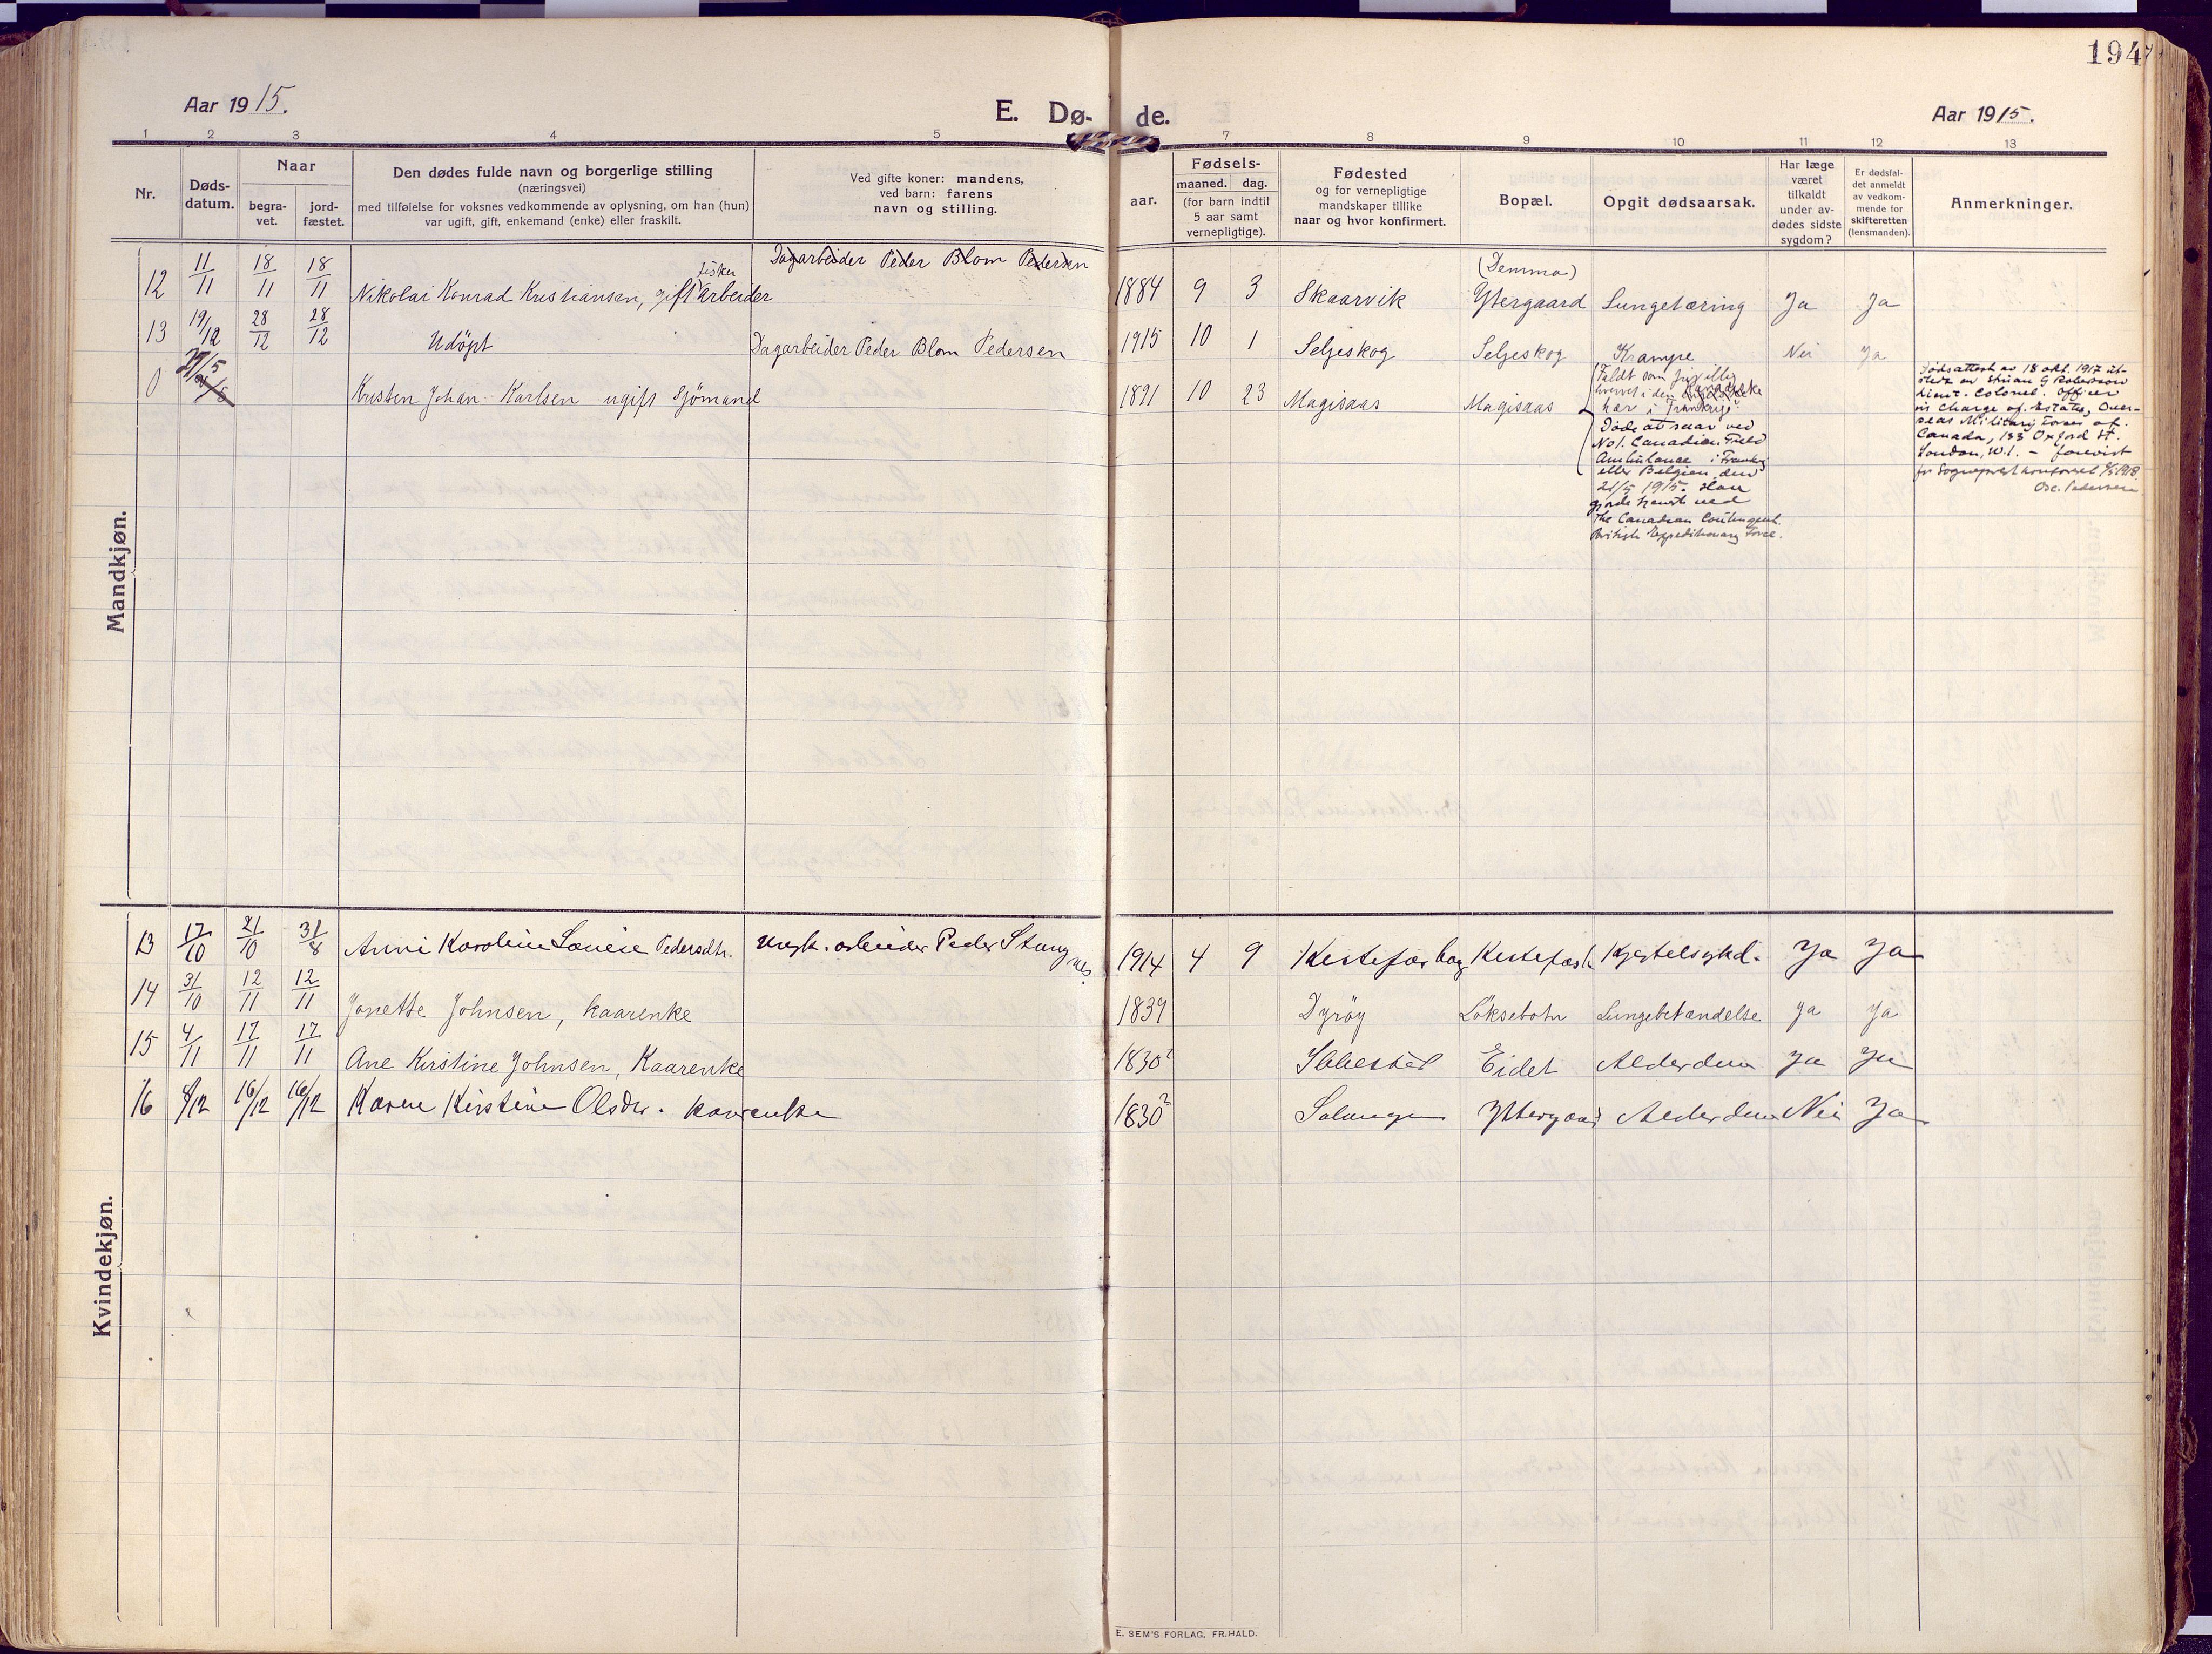 194
Aar 1915.
E. Dø-
de.
Aar 1915.
1 2 3 4 5 7 8 9 10 11 12 13
Nr.
Døds-
datum.
Naar
begra-
vet.
jord-
fæstet.
Den dødes fulde navn og borgerlige stilling
(næringsvei)
med tilføielse for voksnes vedkommende av oplysning, om han (hun)
var ugift, gift, enkemand (enke) eller fraskilt.
Ved gifte koner: mandens,
ved barn: farens
navn og stilling.
Fødsels-
aar.
maaned. dag.
(for barn indtil
5 aar samt
vernepligtige).
Fødested
og for vernepligtige
mandskaper tillike
naar og hvor konfirmert.
Bopæl.
Opgit dødsaarsak.
Har læge
været
tilkaldt
under av-
dødes sidste
sygdom?
Er dødsfal-
det anmeldt
av vedkom-
mende for
skifteretten
(lensmanden).
Anmerkninger.
Mandkjøn.
Dagarbeider Peder Blom Pedersen
fisker
(Demma)
12 11/11 18/11 18/11 Nikolai Konrad Kristiansen, gift arbeider 1884 9 3 Skaarvik Ytergaard Lungetæring Ja Ja
13 19/12 28/12 28/12 Udøpt Dagarbeider Peder Blom Pedersen 1915 10 1 Seljeskog Seljeskog Krampe Nei Ja
0 21/5 Kristen Johan Karlsen ugift Sjömand 1891 10 23 Magisaas Magisaas
Faldt som frivillig
hvervet i den
hær i Frankrige?
Døde av saar ved
No 1. Canadian Field
Ambulance i Frankr.
eller Belgien den
21/5 1915. Han
gjorde tjeneste ved
The Canadian Contingent.
British Expeditionary Force.
Dødsattest av 18 okt. 1917 ut-
stedt av G Roberson
Lieut. Colonel. Officer
in Charge of Estates, Over-
seas Military Forces of
Canada, 133 Oxford St.
London, W.1. – forevist
for Sogneprest
Osc. Pedersen
Kvindekjøn.
13 17/10 21/10 31/8 Anni Karoline Lovise Pedersdtr. ungk. arbeider Peder Stangnes. 1914 4 9 Kestefarbag Kjertelsykd. Ja Ja
14 31/10 12/11 12/11 Janette Johnsen, kaarenke 1839 Dyröy Löksebotn Lungebetændelse Ja Ja
15 4/11 17/11 17/11 Ane Kirstine Johnsen, Kaarenke 1830? Eidet Alderdom Ja Ja
16 4/12 16/12 16/12 Karen Kirstine Olsdtr. kaarenke 1830? Salangen Yttergaard Alderdom Nei Ja
E. SEM'S FORLAG, FR.HALD.